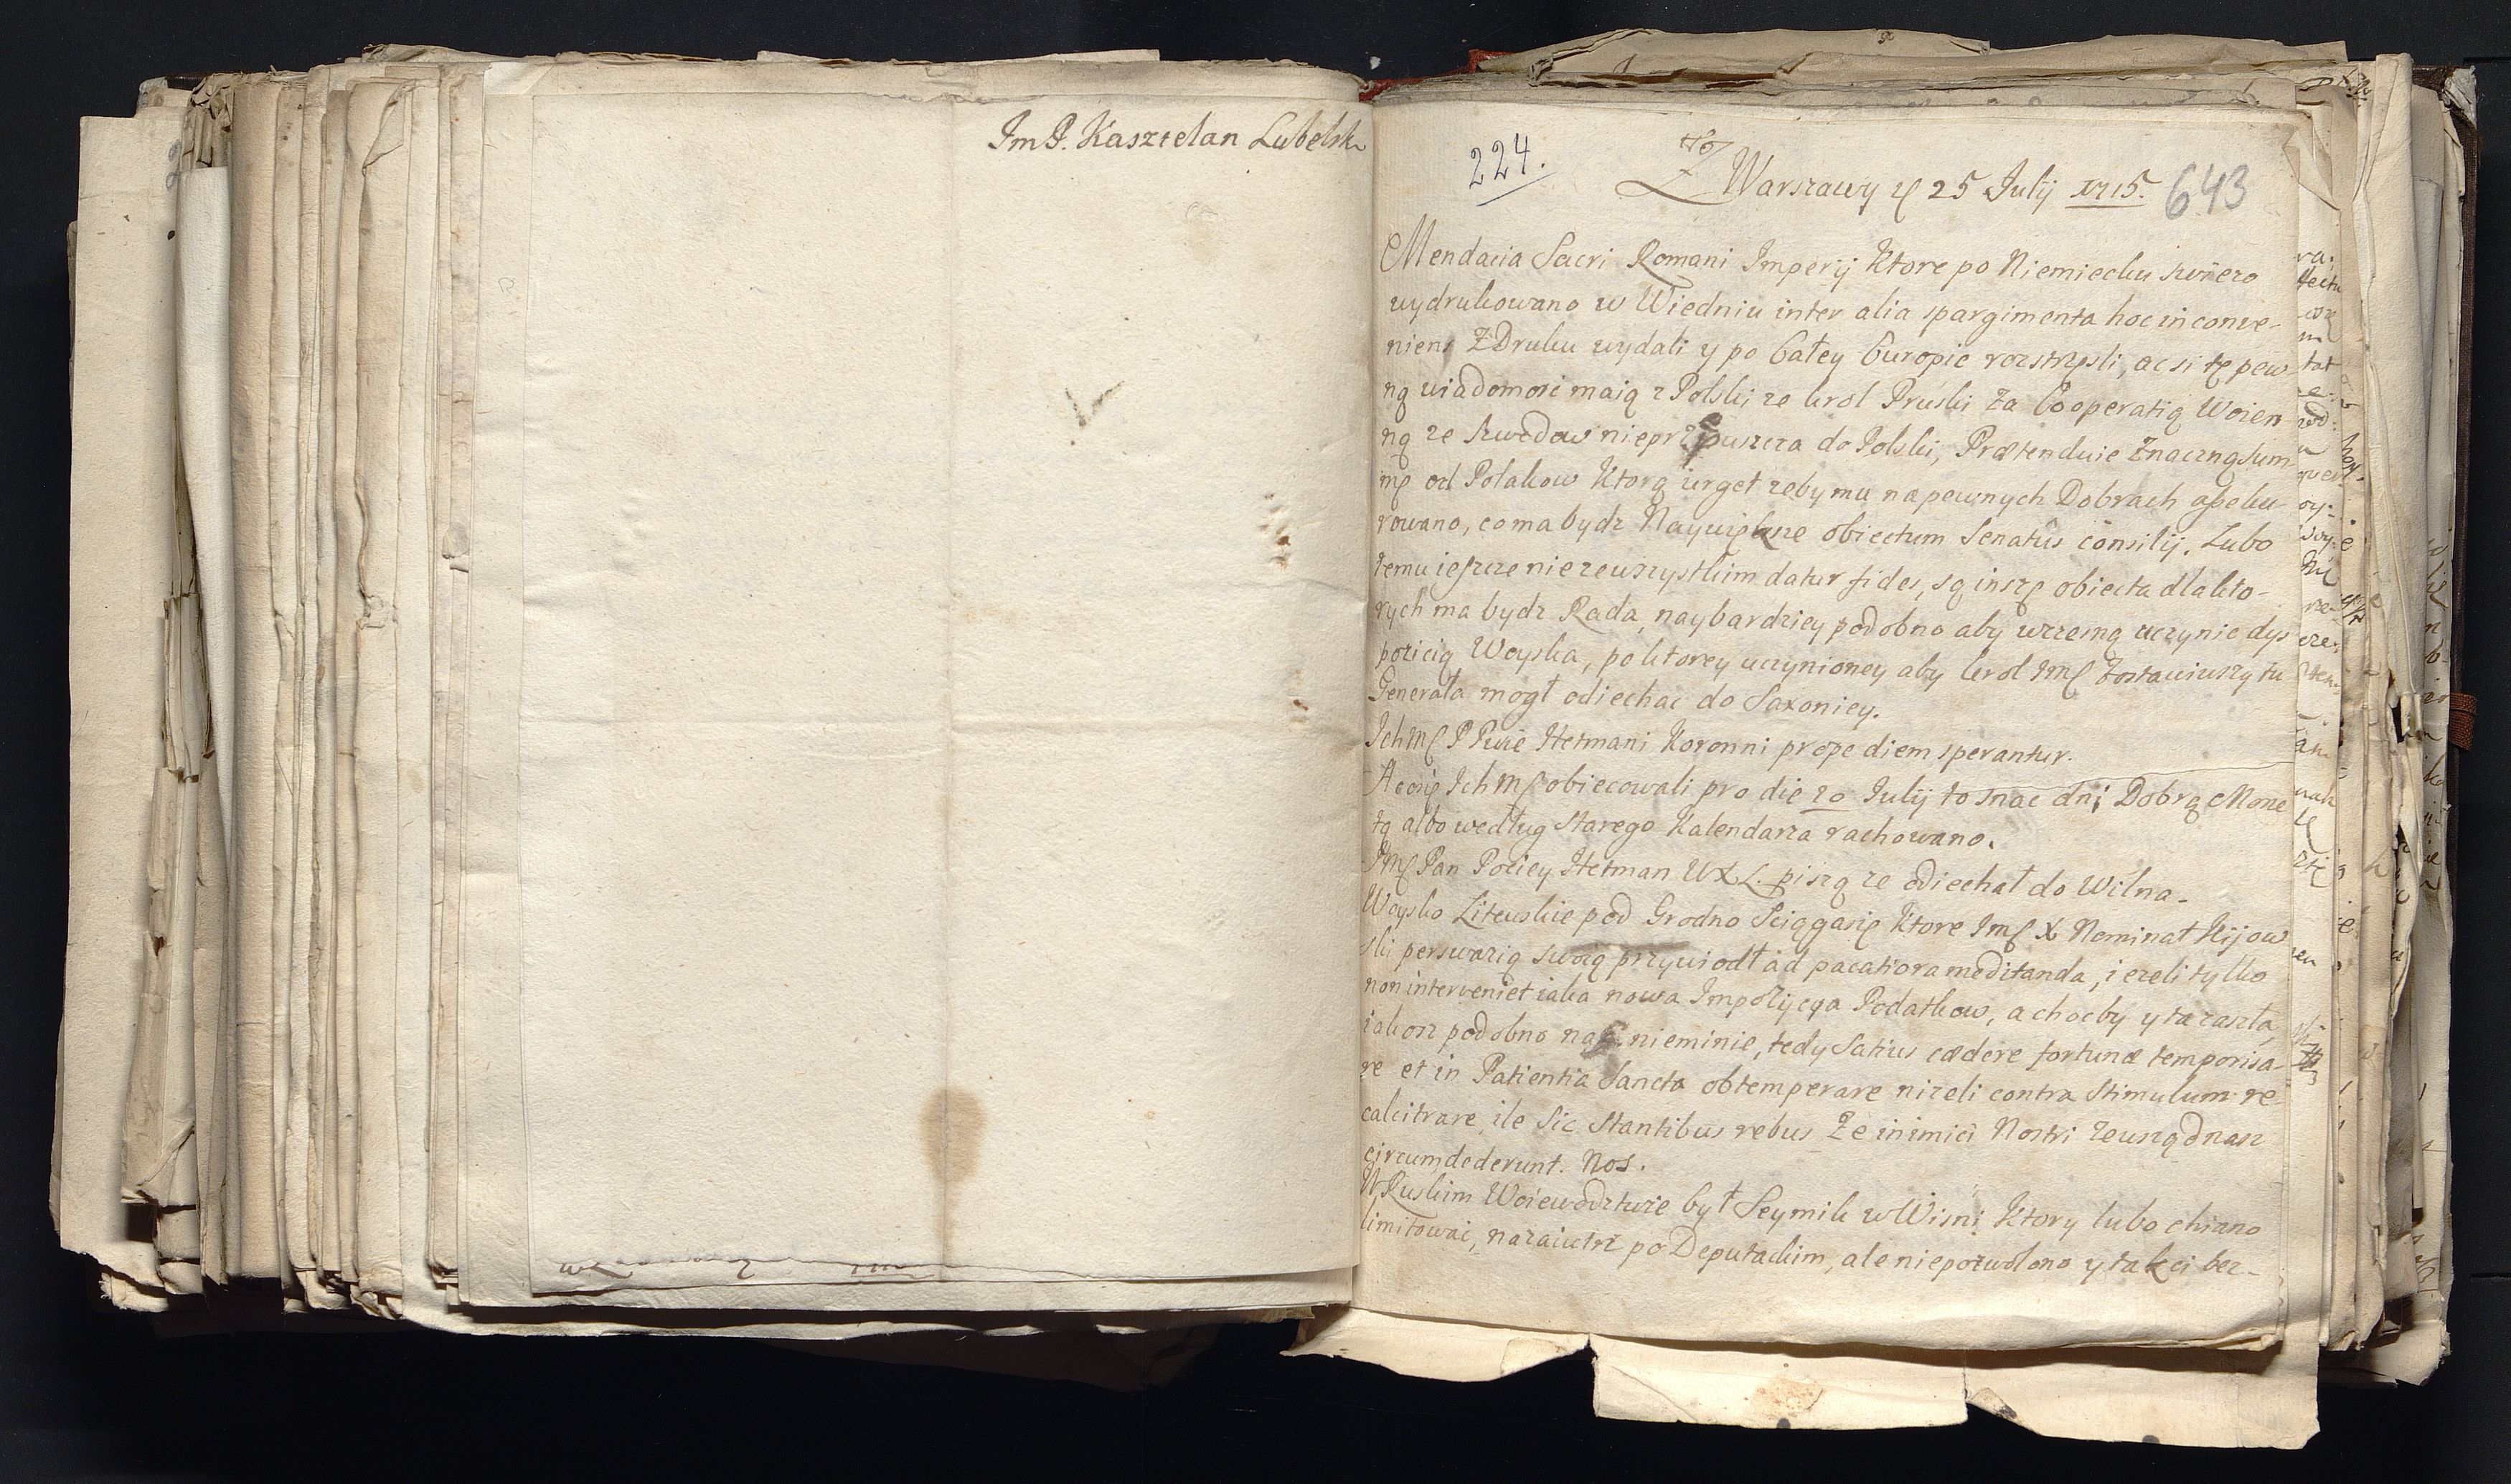 Im P. Kasztelan Lubelsk
224.
Z Warszawy d 25 Julij 1715.
643
Mendacia Sacri Romani Imperij Ktore po Niemiecku swiezo
wydrukowano w Wiedniu inter alia spargimenta hoc inconve-
niens Z Druku wydali y po Całey Europie rozstrzęsli, ac si tę pew-
ną wiadomosc maią z Polski ze krol Pruski za Cooperatią Woien
ną ze Szwedow nieprzypuszcza do Polski, Prætenduie Znaczną sum-
mę od Polakow Ktorą urget zeby mu na pewnych Dobrach assecu
rowano, co ma bydz Naywiększe obiectum Senatûs consilij. Lubo
temu ieszcze nie ze wszystkim datur fides, są inszę obiecta dla kto-
rych ma bydz Rada, naybardziey podobno aby wczesną uczynic dys
pozicią Woyska, po ktorey uczynioney aby krol Jmſ zostawiwszy tu
Generała mogł odiechac do Saxoniey.
Ich Mſ PPwie Hetmani Koronni prope diem sperantur.
A coż Ich Mſ obiecowali pro die 20 Julij to snac dni Dobrą Mone
tą albo według starego Kalendarza rachowano.
Jmſ Pan Pociey Hetman WXL. piszą ze odiechał do Wilna.
Woysko Litewskie pod Grodno Sciągasię Ktore Jmſ X Nominat Kijow
ski perswazią swoią przywiodł ad pacatiora meditanda, iezeli tylko
non interveniet iaka nowa Impozijcya Podatkow, a chocby y ta zaszła,
iakosz podobno nas nieminie, tedy Satius cædere fortunæ temporisa-
re et in Patientia Sancta obtemperare nizeli contra Stimulum re
calcitrare, ile Sic Stantibus rebus Ze inimici Nostri zewsząd nasz
circumdederunt. Nos.
W Ruskim Woiewodztwie był Seymik w Wisni Ktory lubo chciano
limitowac, nazaiutrz po Deputackim, ale niepozwolono y takci bez-